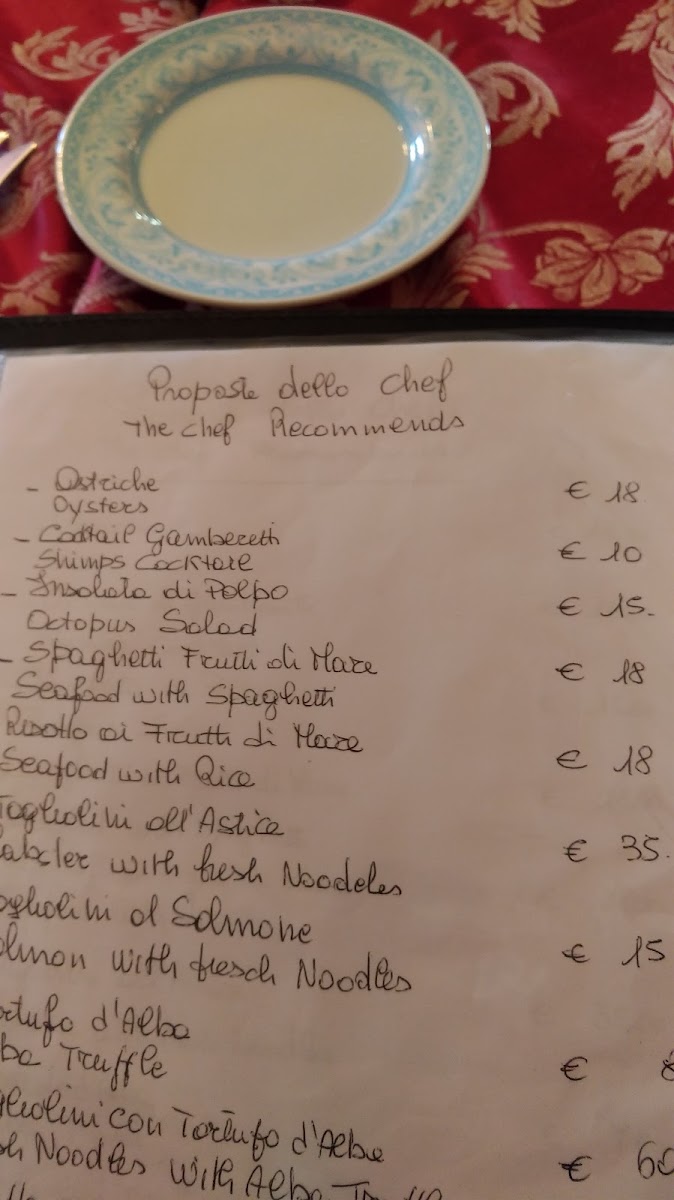 Proposte dello chef
The chef Recommends
- Ostriche € 18
Oysters
- Codtail Gamberetti € 10
Shimps Cocktare
- Insalata di Polpo € 15.
Octopus Salad
- Spaghetti Frutti di Mare € 18
Seafood with Spaghetti
Risotto ai Frutti di Mare € 18
Seafood with Rice
Tagliolini all'Astice € 35.
with fresh Noodeles
al Salmone € 15
with fresch Noodles
d'Alba
Truffle €
con Tortufo d'Alba
Noodles with Alba €